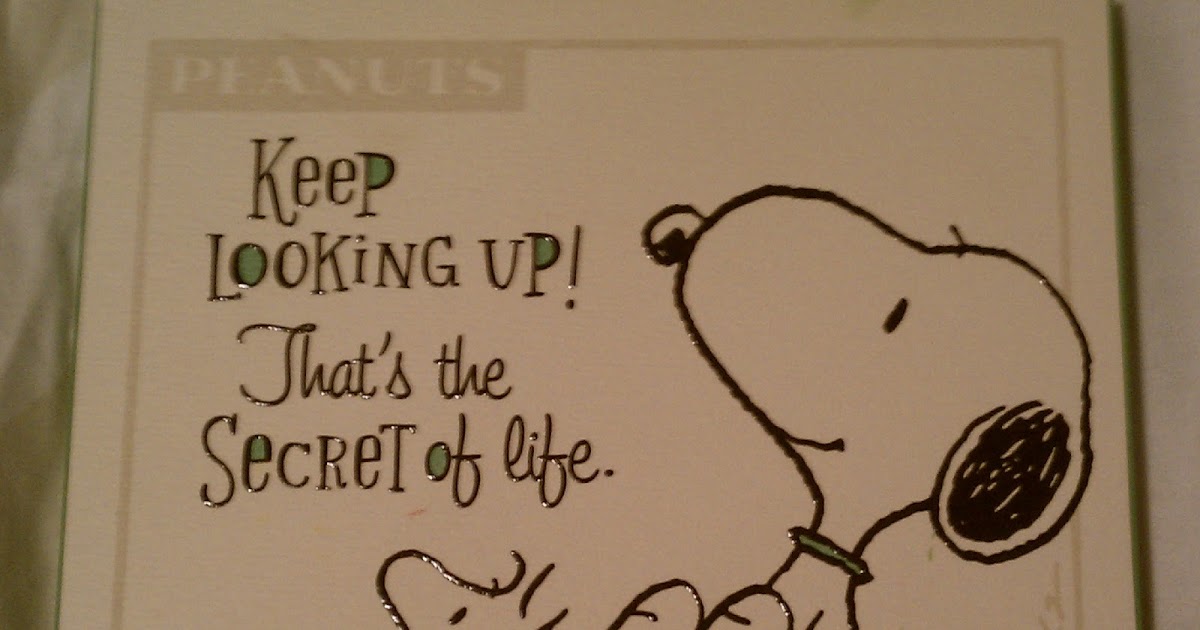 PEANUTS
Keep
Looking up!
That's the
Secret of life.